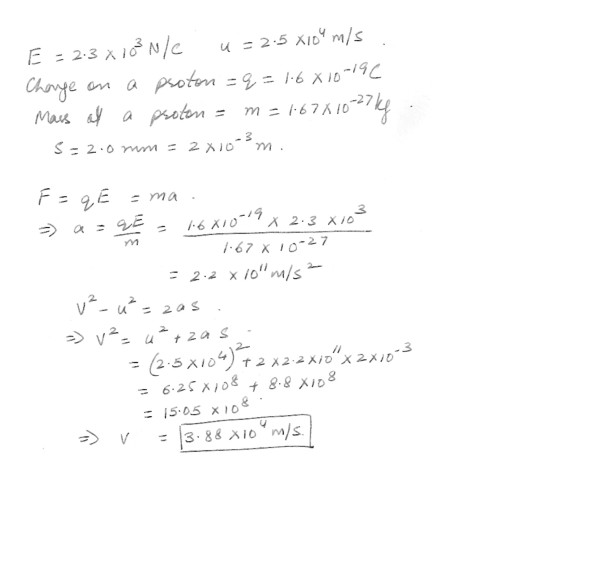 E = 2.3 x 10³ N/C u = 2.5 x10⁴ m/s .
Charge on a proton = q = 1.6 x 10⁻¹⁹C
Mass of a proton = m = 1.67x10⁻²⁷kg .
S = 2.0 mm = 2 x10⁻³ m .
F = qE = ma .
=> a = qE/m = 1.6 x10⁻¹⁹ x 2.3 x10³ / 1.67 x 10⁻²⁷
= 2.2 x 10¹¹ m/s²
v² - u² = 2as .
=> v² = u² + 2as .
= (2.5x10⁴)² + 2 x2.2x10¹¹ x 2x10⁻³
= 6.25 x10⁸ + 8.8 x10⁸
= 15.05 x 10⁸ .
=> v = 3.88 x10⁴ m/s.